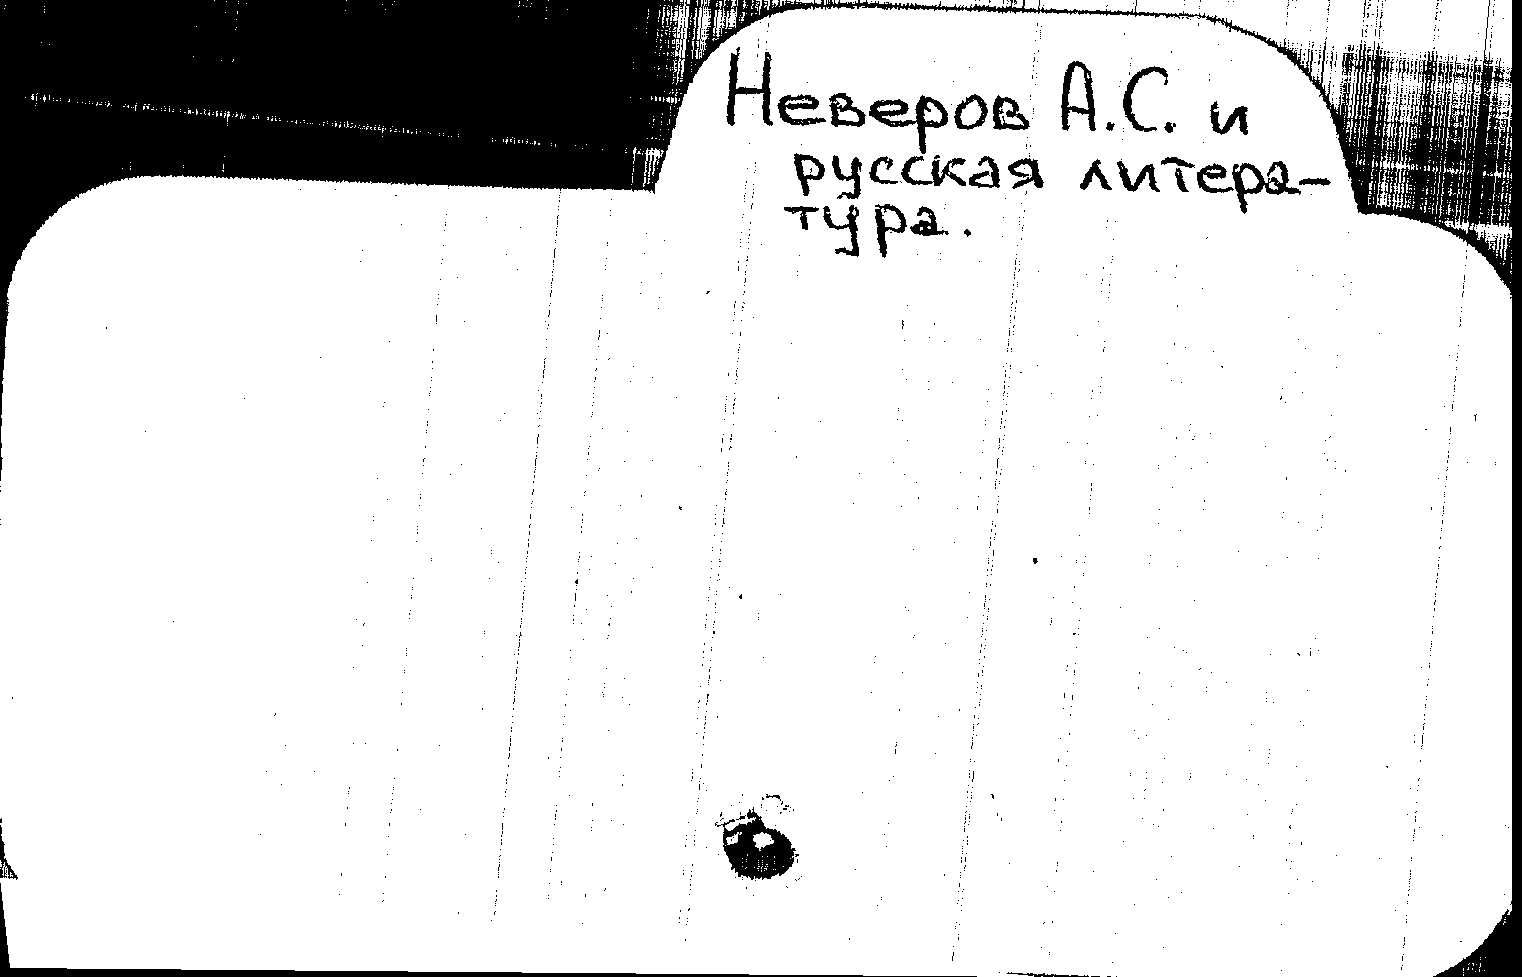 Неверов А.С. и
русская литера-
тура.